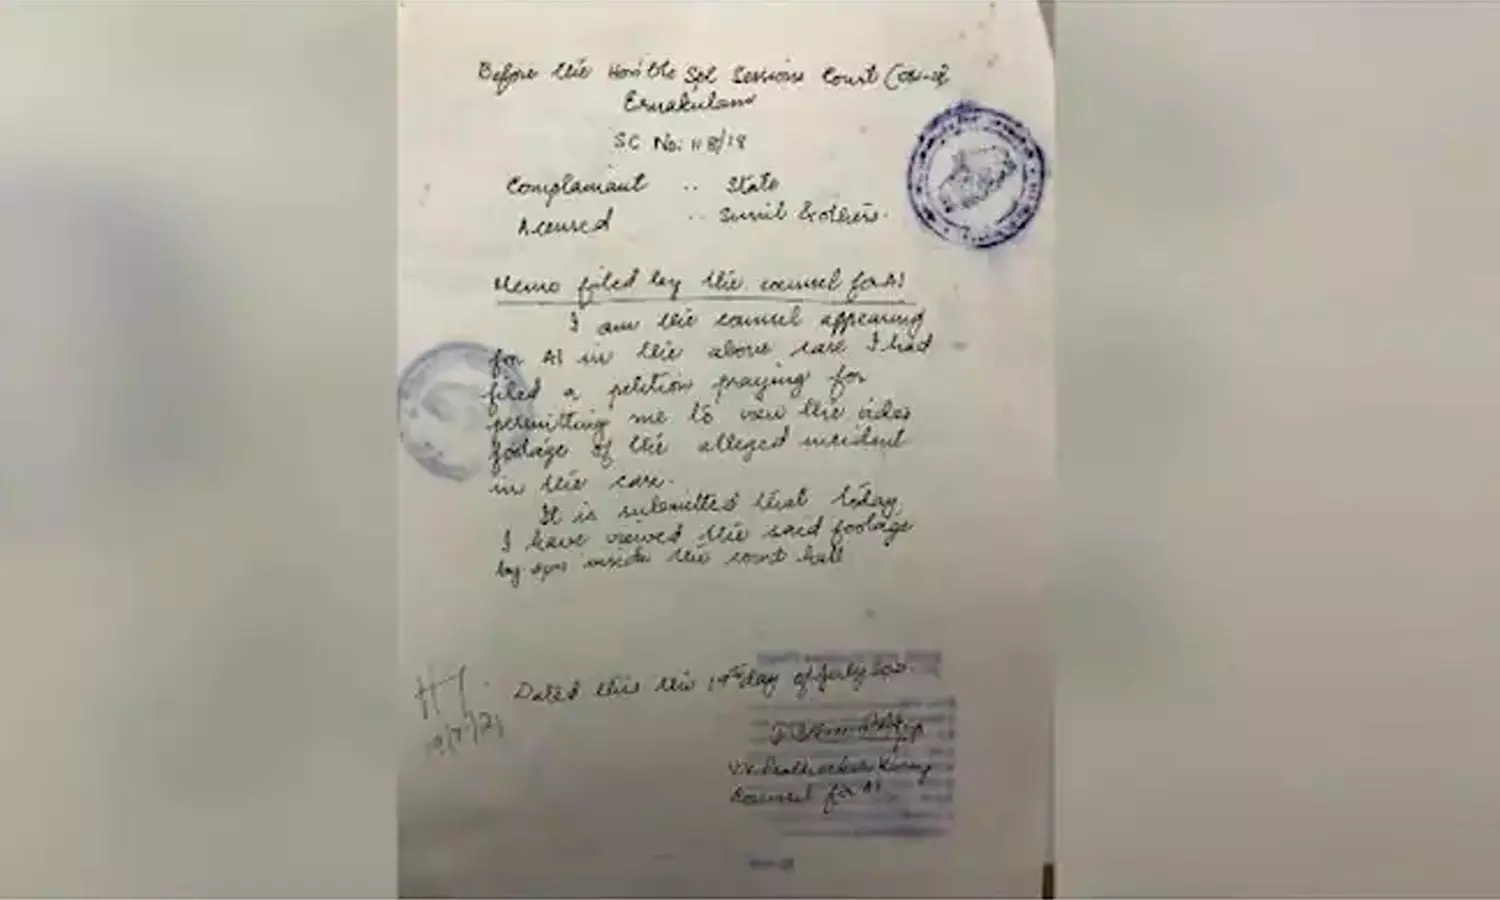 Before the Hon'ble Spl Sessions Court
Ernakulam
SC No: 118/18
Complainant .. State
Accused .. Sunil & others.
Memo filed by the counsel for A1
I am the counsel appearing
for A1 in the above case I had
filed a petition praying for
permitting me to view the video
footage of the alleged incident
in the case.
It is submitted that today
I have viewed the said footage
by inside the court hall
Dated this the 19th day of July
19/7/21
Counsel for A1